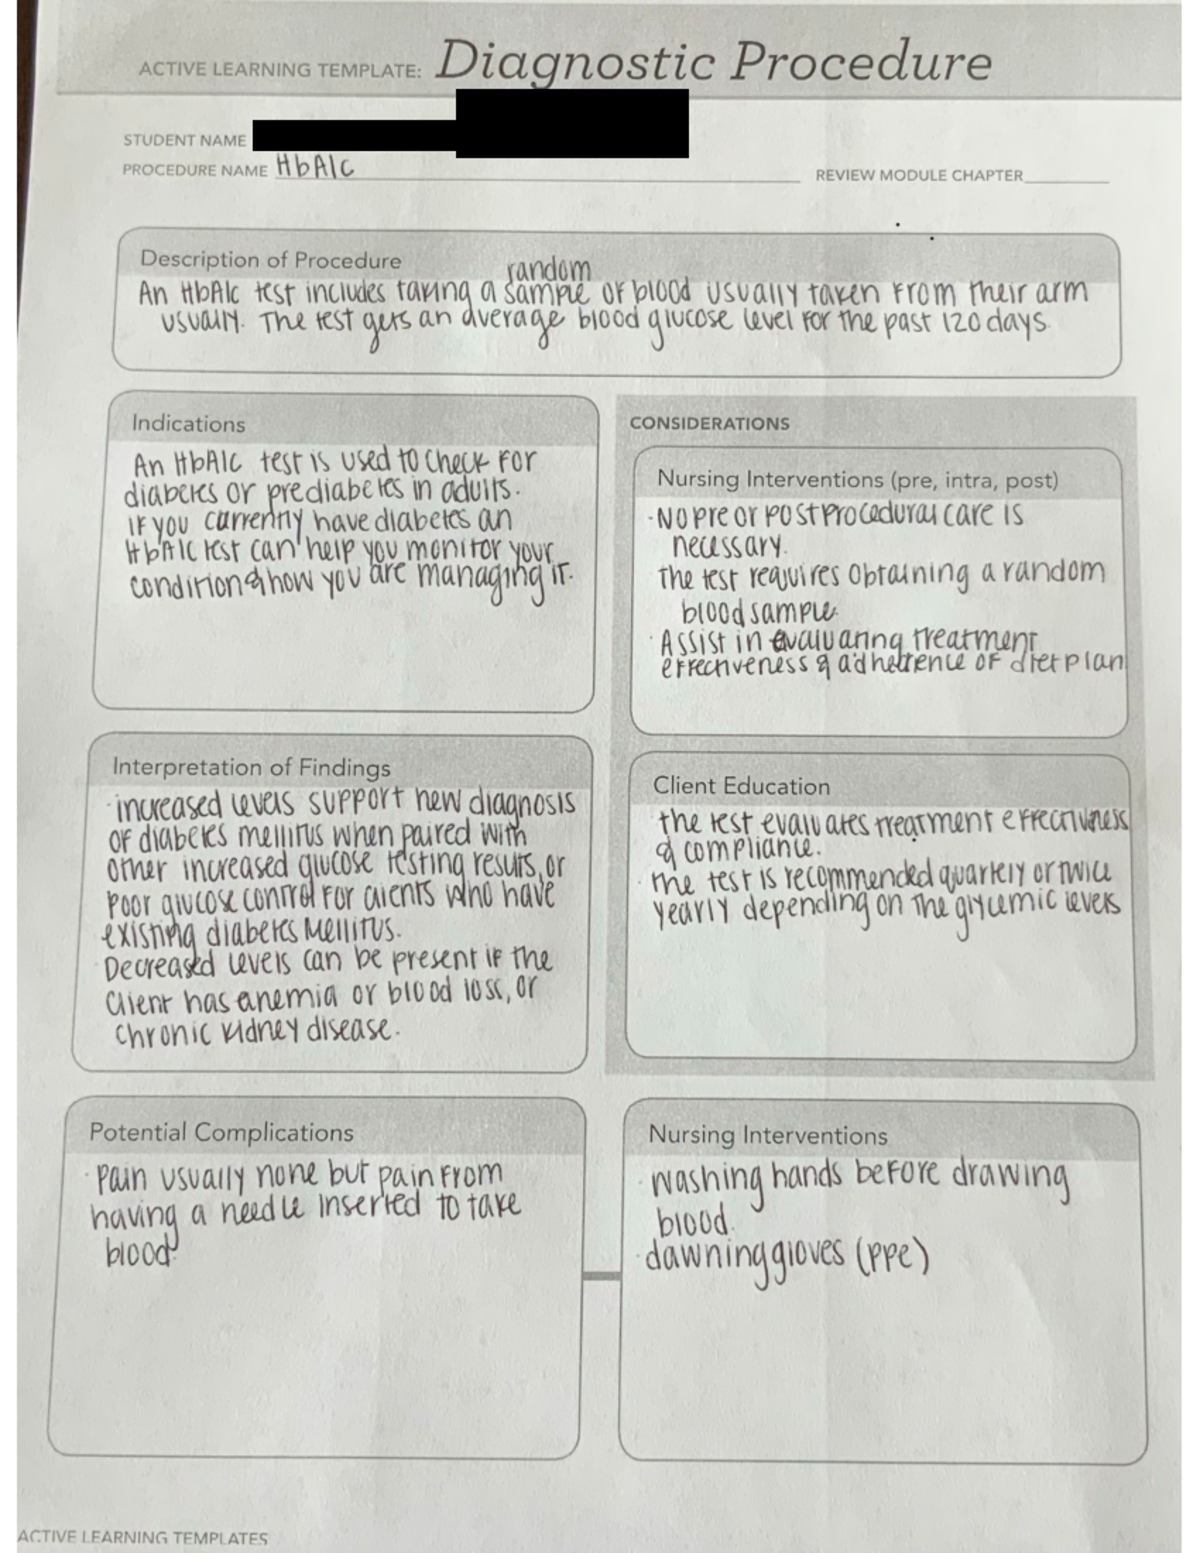 ACTIVE LEARNING TEMPLATE: Diagnostic Procedure
STUDENT NAME
PROCEDURE NAME HbA1c
REVIEW MODULE CHAPTER
Description of Procedure
random
An HbA1c test includes taking a sample of blood usually taken from their arm
usually. The test gets an average blood glucose level for the past 120 days.
Indications
An HbA1c test is used to check for
diabetes or prediabetes in adults.
If you currently have diabetes an
HbA1c test can help you monitor your
condition & how you are managing it.
CONSIDERATIONS
Nursing Interventions (pre, intra, post)
· No pre or post procedural care is
necessary.
The test requires obtaining a random
blood sample.
· Assist in evaluating treatment
effectiveness & adherence of diet plan
Interpretation of Findings
· increased levels support new diagnosis
of diabetes mellitus when paired with
other increased glucose testing results, or
poor glucose control for clients who have
existing diabetes mellitus.
· Decreased levels can be present if the
client has anemia or blood loss, or
chronic kidney disease.
Client Education
the test evaluates treatment effectiveness
& compliance.
· the test is recommended quartely or twice
yearly depending on the glycemic levels
Potential Complications
· Pain usually none but pain from
having a needle inserted to take
blood.
Nursing Interventions
· washing hands before drawing
blood.
· dawning gloves (PPE)
ACTIVE LEARNING TEMPLATES